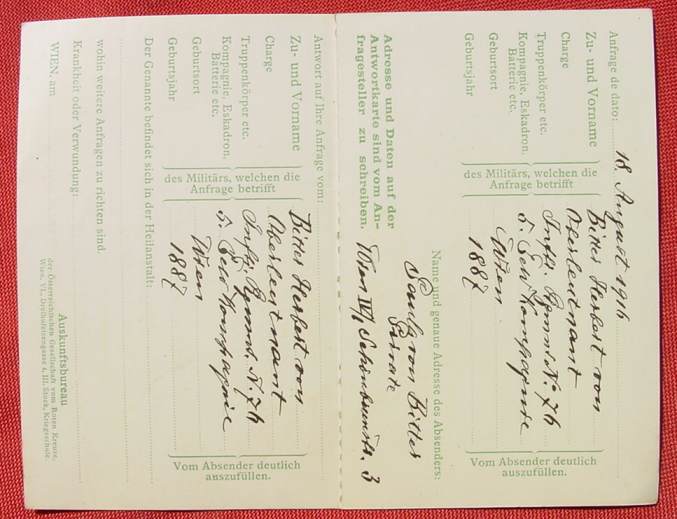 Anfrage de dato: 18. August 1916
Zu- und Vorname Bitter Herbert von
Charge Oberleutnant
Truppenkörper etc. Inftr. Rgmnt. N. 76
Kompagnie, Eskadron, Batterie etc. 5. Feld Kompagnie
Geburtsort Wien
Geburtsjahr 1887
des Militärs, welchen die Anfrage betrifft
Vom Absender deutlich auszufüllen.
Name und genaue Adresse des Absenders:
von Bitter
Private
Wien IV/1 3
Adresse und Daten auf der
Antwortkarte sind vom An-
fragesteller zu schreiben.
Antwort auf Ihre Anfrage vom:
Zu- und Vorname Bitter Herbert von
Charge Oberleutnant
Truppenkörper etc. Inftr. Rgmnt. N. 76
Kompagnie, Eskadron, Batterie etc. 5. Feld Kompagnie
Geburtsort Wien
Geburtsjahr 1887
des Militärs, welchen die Anfrage betrifft
Vom Absender deutlich auszufüllen.
Der Genannte befindet sich in der Heilanstalt:
wohin weitere Anfragen zu richten sind.
Krankheit oder Verwundung:
WIEN, am
Auskunftsbureau
der Österreichischen Gesellschaft vom Roten Kreuze,
Wien, VI., Dreihufeisengasse 4, III. Stock, Kriegsschule.